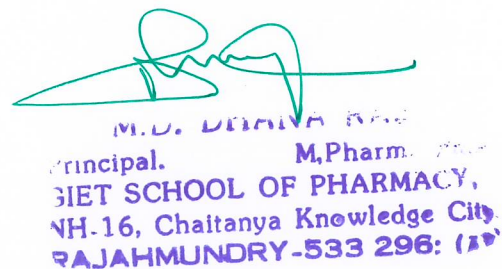 M.D. DHANA
Principal. M,Pharm.
GIET SCHOOL OF PHARMACY,
NH-16, Chaitanya Knowledge City
RAJAHMUNDRY-533 296: